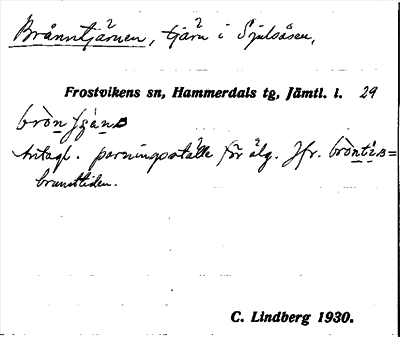 Brånntjärnen, tjärn i Sjulsåsen,
Frostvikens sn, Hammerdals tg, Jämtl. l. 29
Antagl. parningsställe för älg. Jfr.
brunsttiden.
C. Lindberg 1930.